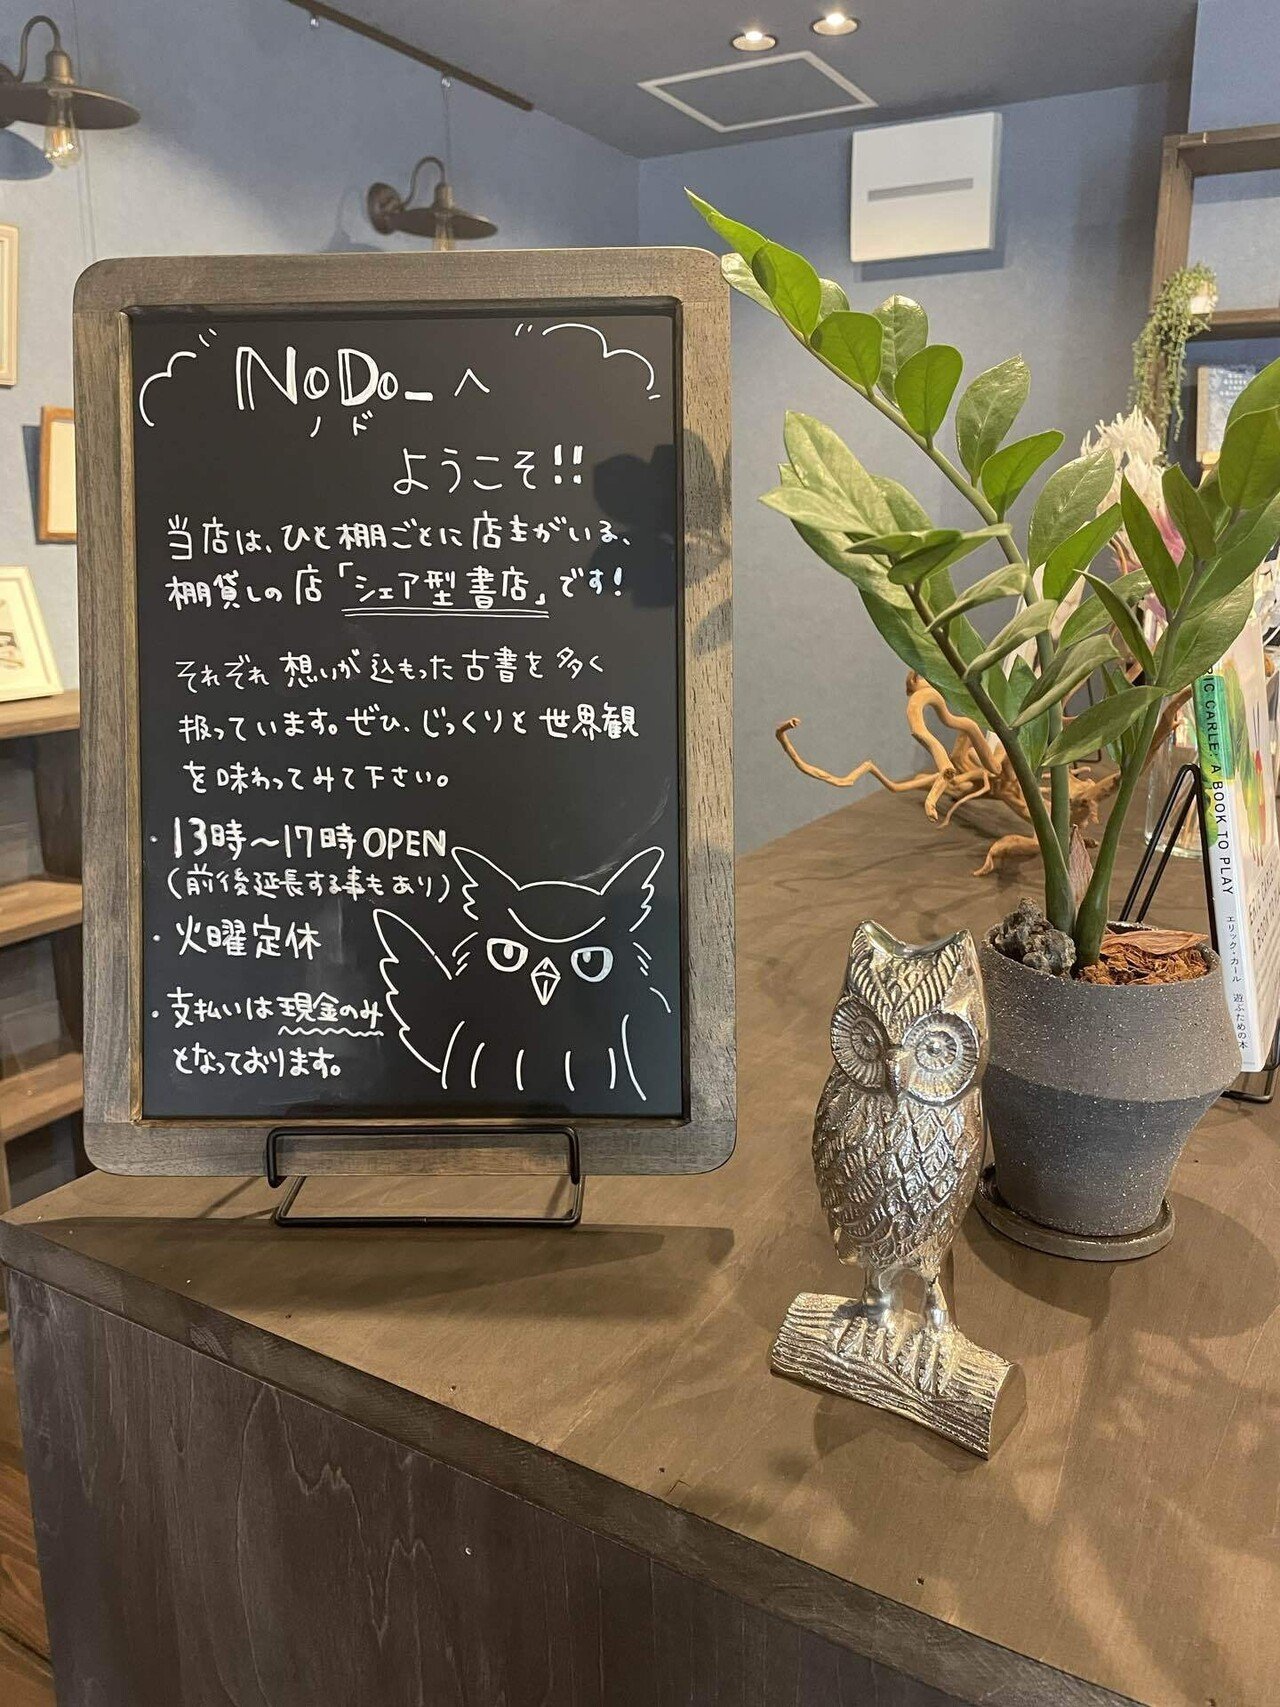 NoDo_へ
ノド
ようこそ!!
当店は、ひと棚ごとに店主がいる、
棚貸しの店「シェア型書店」です!
それぞれ想いが込もった古書を多く
扱っています。ぜひ、じっくりと世界観
を味わってみて下さい。
・13時〜17時OPEN
(前後延長する事もあり)
・火曜定休
・支払いは現金のみ
となっております。
RIC CARLE: A BOOK TO PLAY
エリック・カール 遊ぶための本